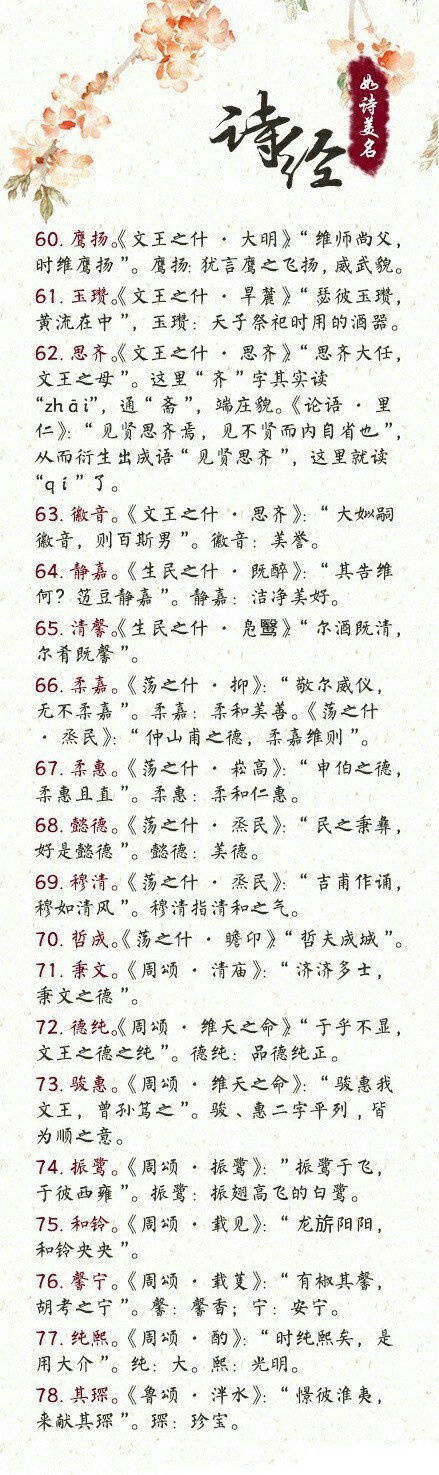 诗经
如诗美名
60. 鹰扬。《文王之什 · 大明》“维师尚父，
时维鹰扬”。鹰扬: 犹言鹰之飞扬，威武貌。
61. 玉瓒。《文王之什 · 旱麓》“瑟彼玉瓒，
黄流在中”，玉瓒：天子祭祀时用的酒器。
62. 思齐。《文王之什 · 思齐》“思齐大任，
文王之母”。这里“齐”字其实读
“zhāi”，通“斋”，端庄貌。《论语 · 里
仁》：“见贤思齐焉，见不贤而内自省也”，
从而衍生出成语“见贤思齐”，这里就读
“qí”了。
63. 徽音。《文王之什 · 思齐》：“大姒嗣
徽音，则百斯男”。徽音：美誉。
64. 静嘉。《生民之什 · 既醉》：“其告维
何？笾豆静嘉”。静嘉：洁净美好。
65. 清馨。《生民之什 · 凫鹥》“尔酒既清，
尔肴既馨”。
66. 柔嘉。《荡之什 · 抑》：“敬尔威仪，
无不柔嘉”。柔嘉：柔和美善。《荡之什
· 烝民》：“仲山甫之德，柔嘉维则”。
67. 柔惠。《荡之什 · 崧高》：“申伯之德，
柔惠且直”。柔惠：柔和仁惠。
68. 懿德。《荡之什 · 烝民》：“民之秉彝，
好是懿德”。懿德：美德。
69. 穆清。《荡之什 · 烝民》：“吉甫作诵，
穆如清风”。穆清指清和之气。
70. 哲成。《荡之什 · 瞻卬》“哲夫成城”。
71. 秉文。《周颂 · 清庙》：“济济多士，
秉文之德”。
72. 德纯。《周颂 · 维天之命》“于乎不显，
文王之德之纯”。德纯：品德纯正。
73. 骏惠。《周颂 · 维天之命》：“骏惠我
文王，曾孙笃之”。骏、惠二字平列，皆
为顺之意。
74. 振鹭。《周颂 · 振鹭》：“振鹭于飞，
于彼西雍”。振鹭：振翅高飞的白鹭。
75. 和铃。《周颂 · 载见》：“龙旂阳阳，
和铃央央”。
76. 馨宁。《周颂 · 载芟》：“有椒其馨，
胡考之宁”。馨：馨香；宁：安宁。
77. 纯熙。《周颂 · 酌》：“时纯熙矣，是
用大介”。纯：大。熙：光明。
78. 其琛。《鲁颂 · 泮水》：“憬彼淮夷，
来献其琛”。琛：珍宝。